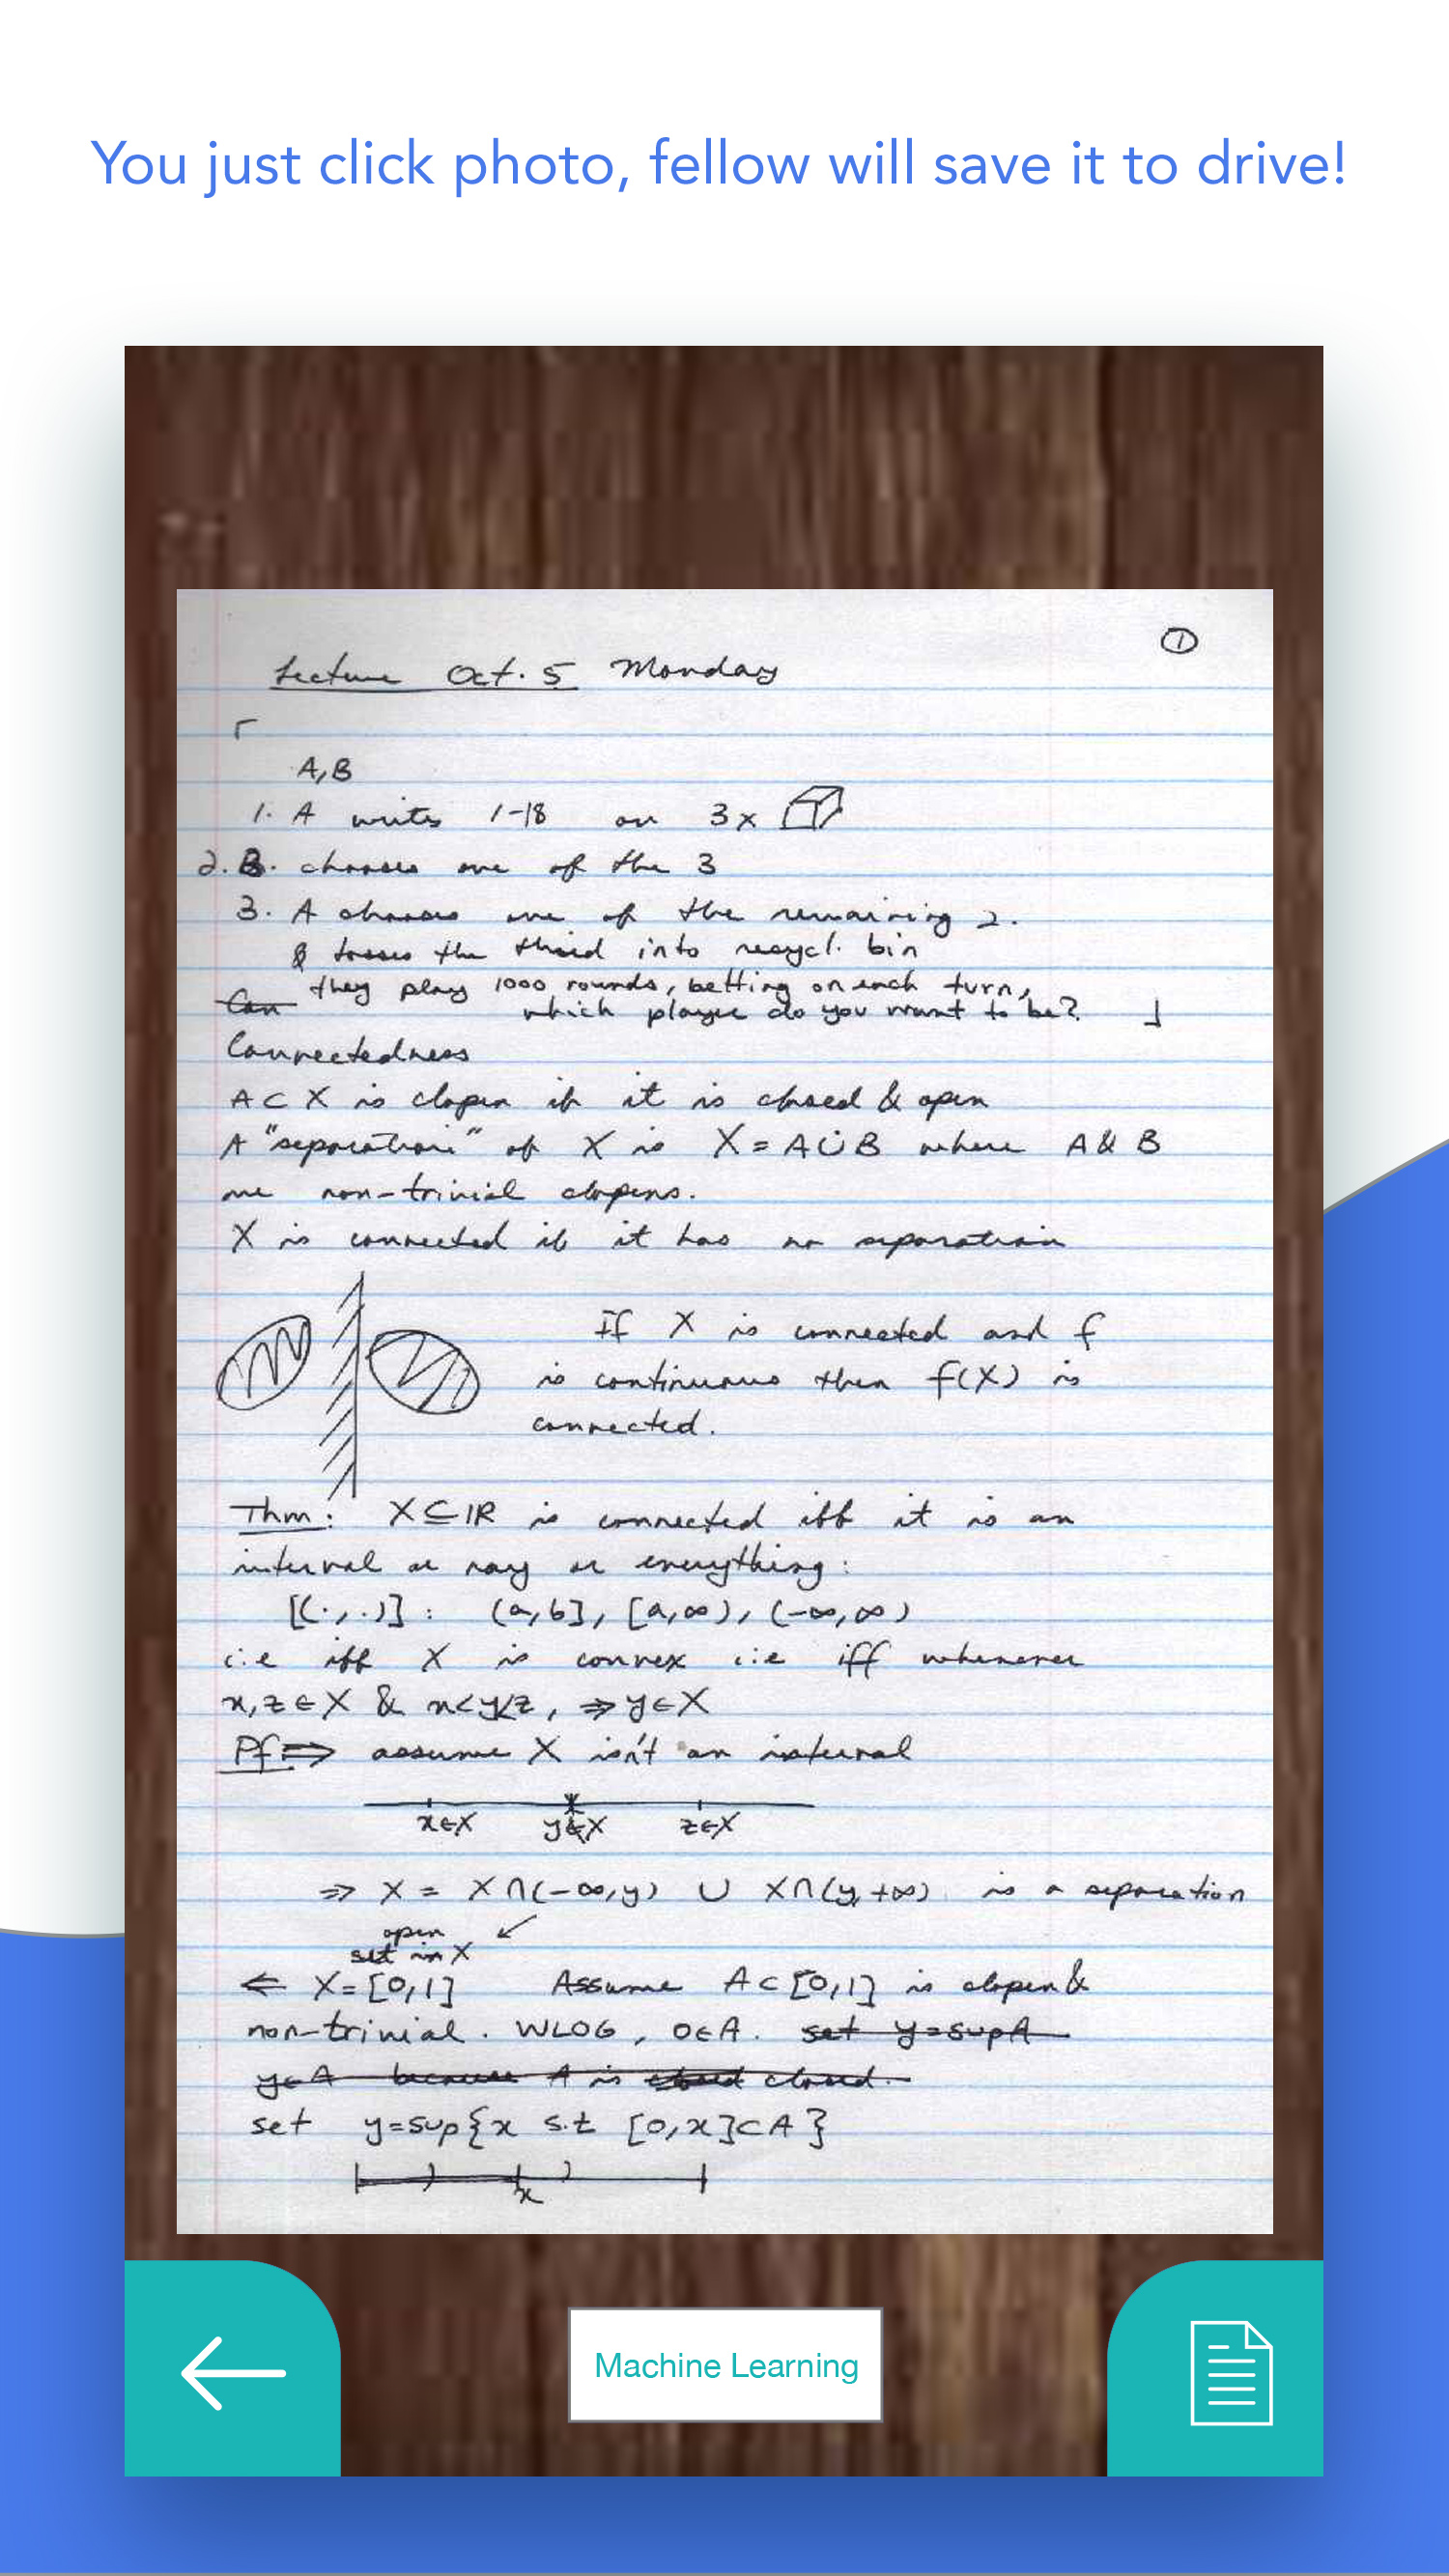 You just click photo, fellow will save it to drive!
①
Lecture Oct. 5 Monday
A, B
1. A writes 1-18 on 3x
2. B. chooses one of the 3
3. A chooses one of the remaining 2.
& tosses the third into recycl. bin
they play 1000 rounds, betting on each turn,
Can which player do you want to be?
Connectedness
A ⊂ X is clopen if it is closed & open
A "separation" of X is X = A ∪̇ B where A & B
are non-trivial clopens.
X is connected if it has no separation
If X is connected and f
is continuous then f(X) is
connected.
Thm: X ⊆ ℝ is connected iff it is an
interval or ray or everything:
[(·,·)]: (a,b], [a,∞), (-∞,∞)
i.e iff X is convex i.e iff whenever
x,z ∈ X & x<y<z, ⇒ y∈X
Pf ⇒ assume X isn't an interval
x∈X y∉X z∈X
⇒ X = X∩(-∞,y) ∪ X∩(y,+∞) is a separation
open
set in X
⇐ X=[0,1] Assume A⊂[0,1] is clopen &
non-trivial. WLOG, 0∈A. set y=supA
y∈A because A is closed.
set y=sup{x s.t [0,x]⊂A}
x
Machine Learning